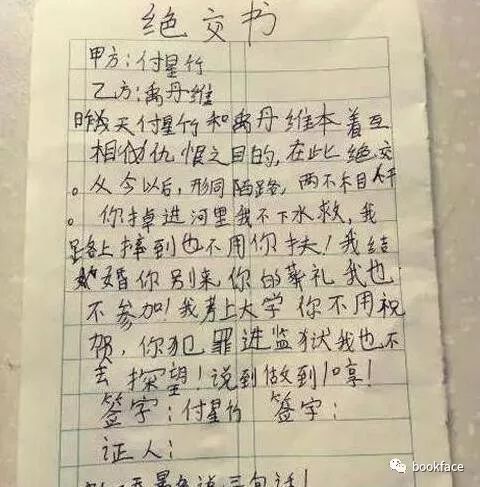 绝交书
甲方:付星竹
乙方:禹丹维
昨天付星竹和禹丹维本着互
相仇恨之目的,在此绝交
。从今以后,形同陌路,两不相干
。你掉进河里我不下水救,我
路上摔到也不用你扶!我结
婚你别来你的葬礼我也
不参加!我考上大学你不用祝
贺,你犯罪进监狱我也不
去探望!说到做到!哼!
签字:付星竹 签字:
证人:
最多说三句话!
bookface